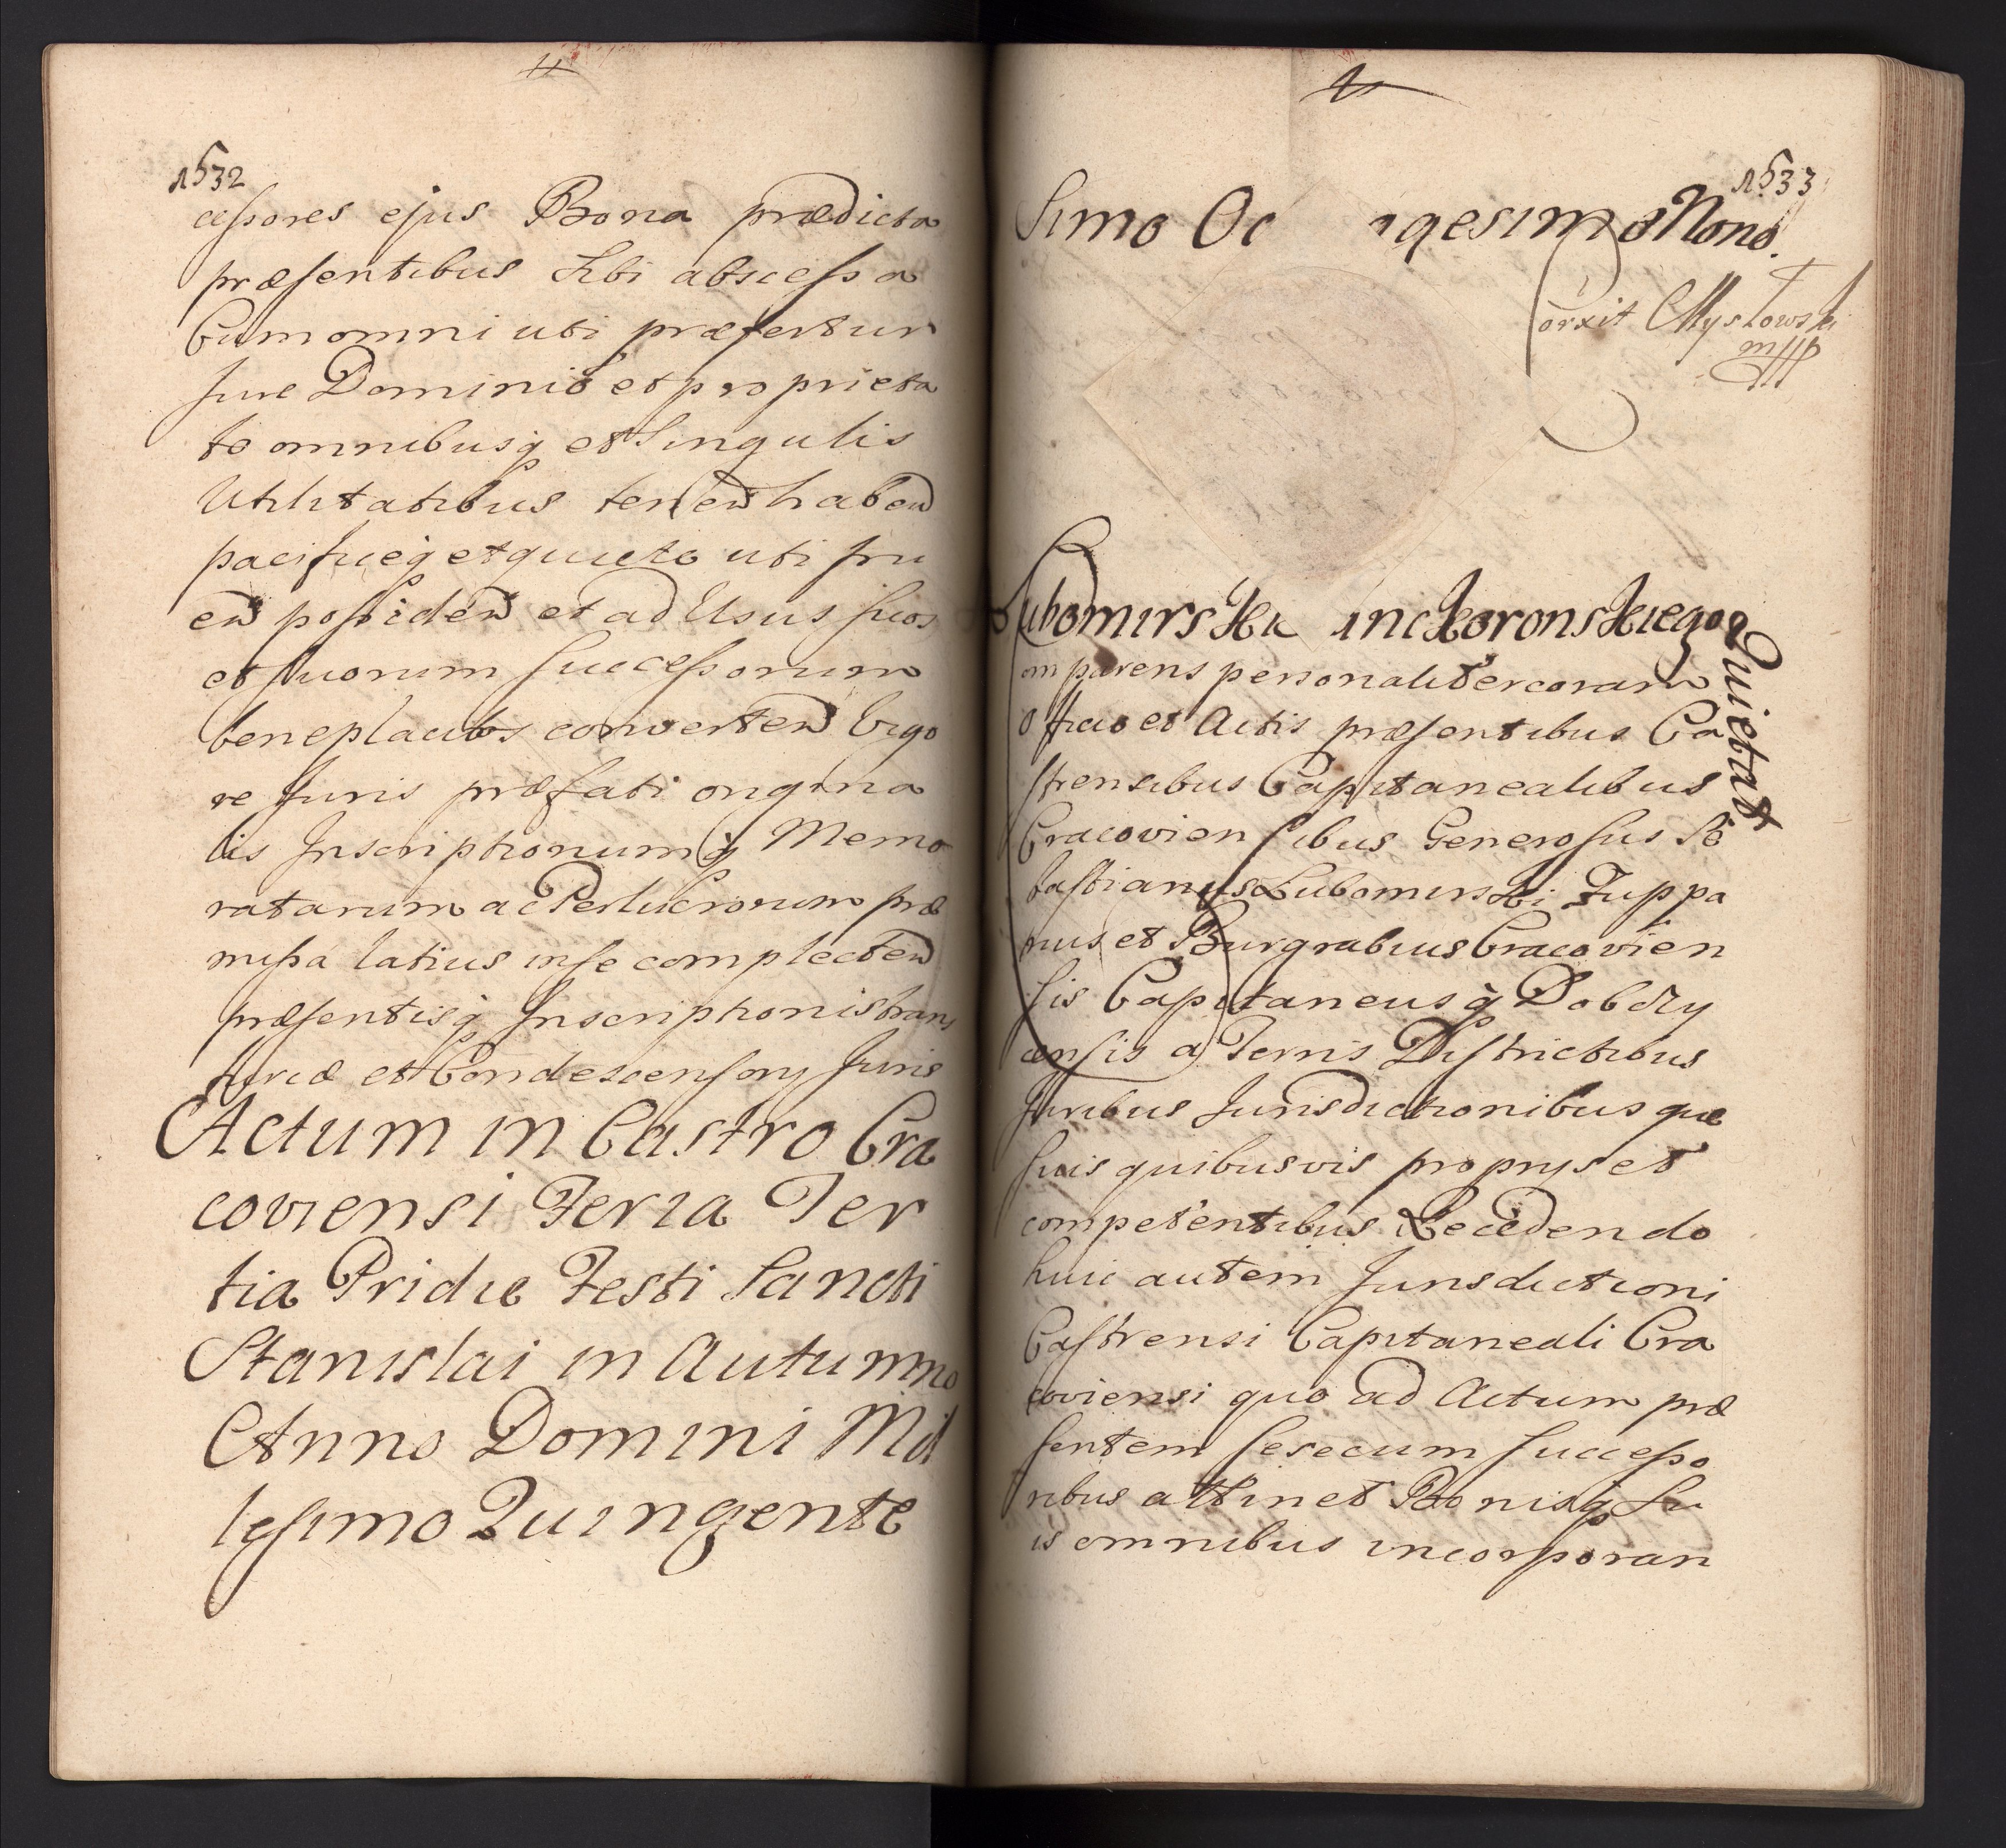 1532
cessores ejus Bona prædicta
præsentibus sibi abscessa
Cum omni uti præfertur
Jure Dominio et proprieta
te omnibusq et Singulis
Utilitatibus tenen haben
pacificeq et quiete uti fru
en possiden et ad Usus suos
et suorum successorum
beneplacitos converten Vigo
re Juris præfati origina
lis Inscriptionumq Memo
ratarum ac Perlucrorum præ
missa latius in se complecten
præsentisq Inscriptionis trans
fusæ et Condescensorij Juris
Actum in Castro Cra
coviensi Feria Ter
tia Pridie Festi Sancti
Stanislai in Autumno
Anno Domini Mil
lesimo Quingente
1533
simo Oc agesimo Nono.
Corxit Mysłowski
mpp
Lubomirski inckoronskiego
Quietat
omparens personaliter coram
Officio et Actis præsentibus Ca
strensibus Capitanealibus
Cracoviensibus Generosus Se
bastianus Lubomirski Zuppa
nus et Burgrabius Cracovien
sis Capitaneusq Dobczy
censis a Terris Districtibus
Juribus Jurisdictionibus quæ
suis quibusvis proprys et
competentibus Recedendo
huic autem Jurisdictioni
Castrensi Capitaneali Cra
coviensi quo ad Actum præ
sentem se secum successo
ribus attinet Bonisq su
is omnibus incorporan